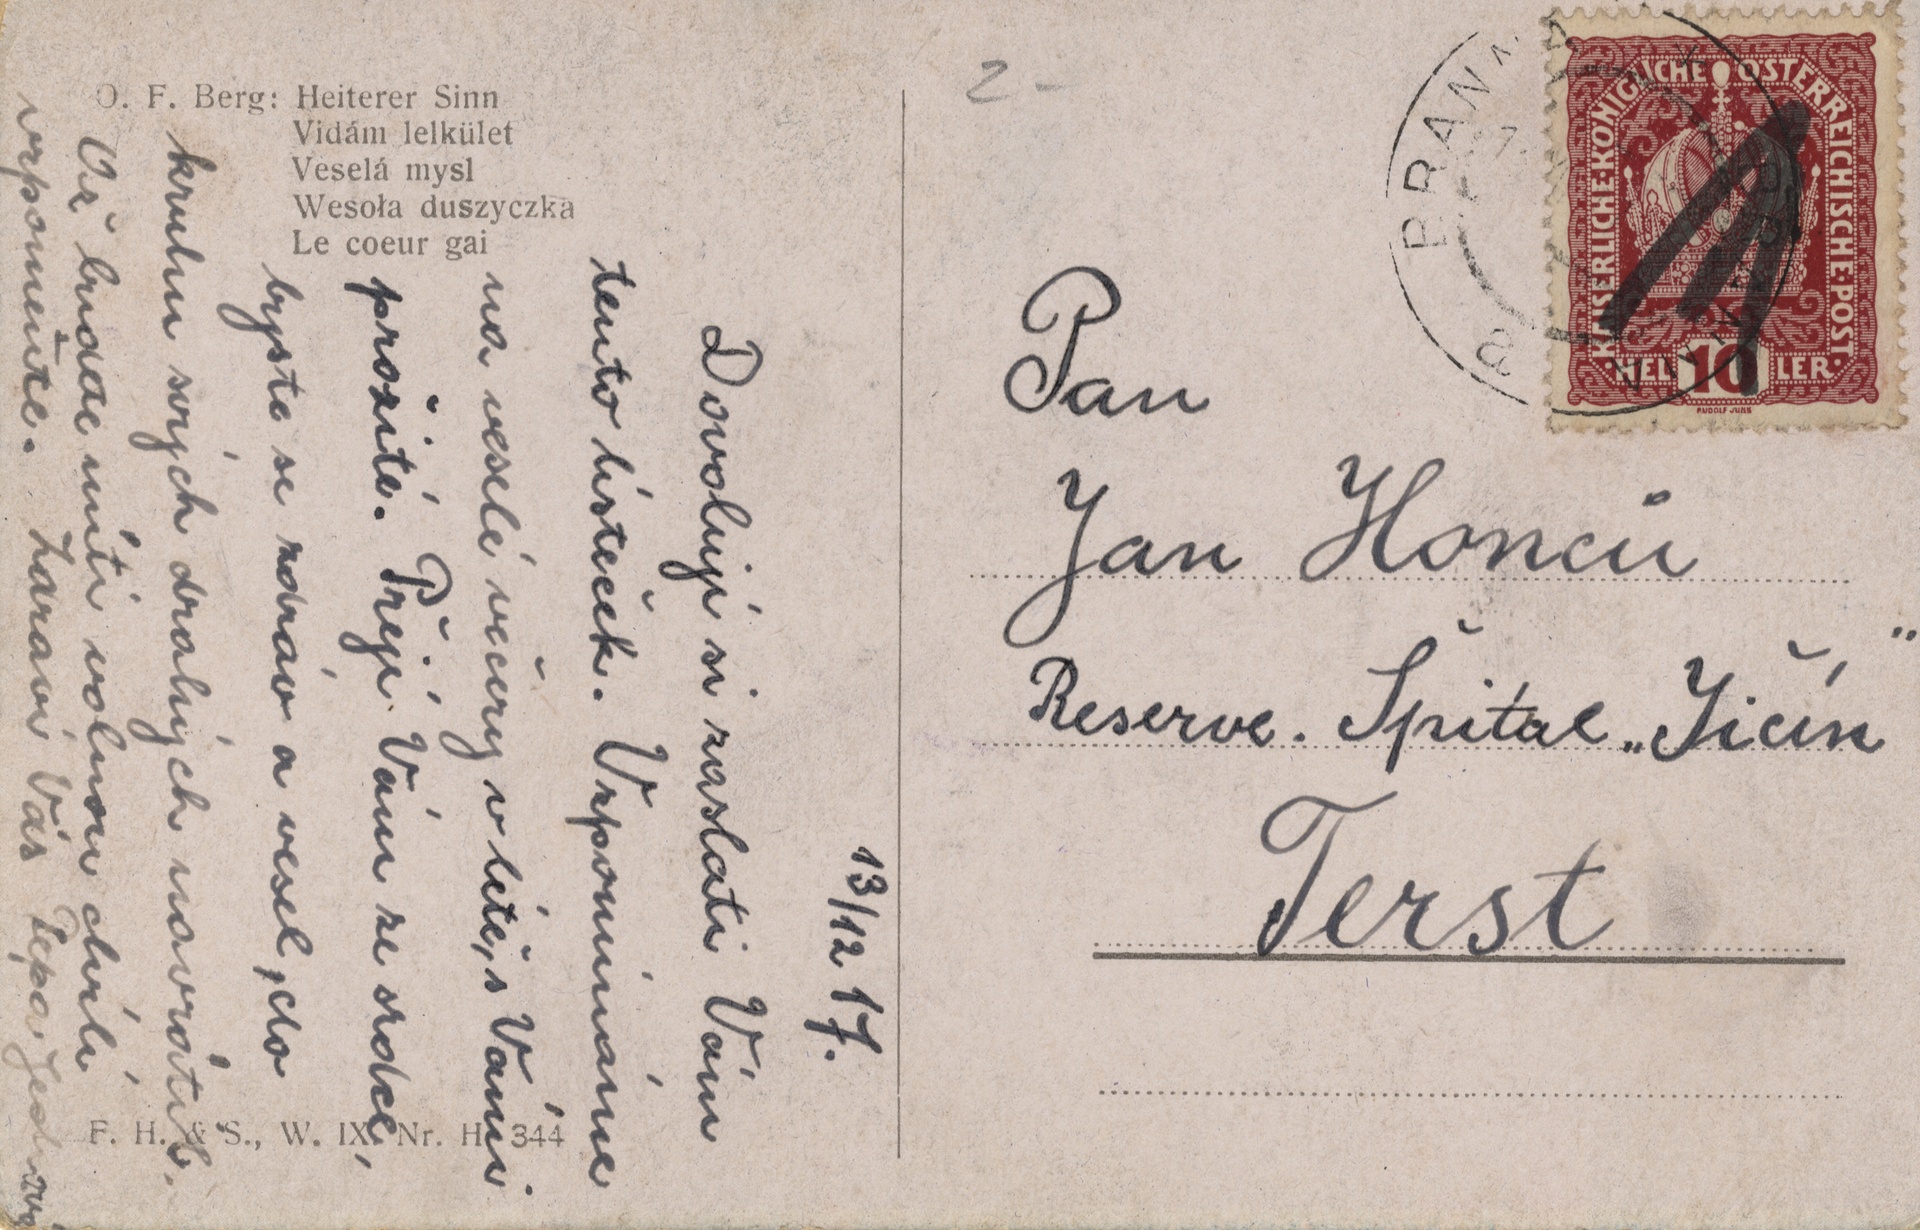 O. F. Berg: Heiterer Sinn
Vidám lelkület
Veselá mysl
Wesoła duszyczka
Le coeur gai
13/12 17.
Dovoluji si zaslati Vám
tento lísteček. Vzpomínáme
na veselé večery v létě, s Vámi
prožité. Přeji Vám ze srdce,
byste se zdráv a vesel, do
kruhu svých drahých navrátil.
Až budete míti volnou chvíli
vzpomeňte. Zdraví Vás Pepa
F. H. & S., W. IX. Nr. H. 344
2-
Pan
Jan Honců
Reserve. Špitál „Jičín"
Terst
KAISERLICHE·KÖNIGLICHE ÖSTERREICHISCHE·POST·
·HELLER·
10
RUDOLF JUNK